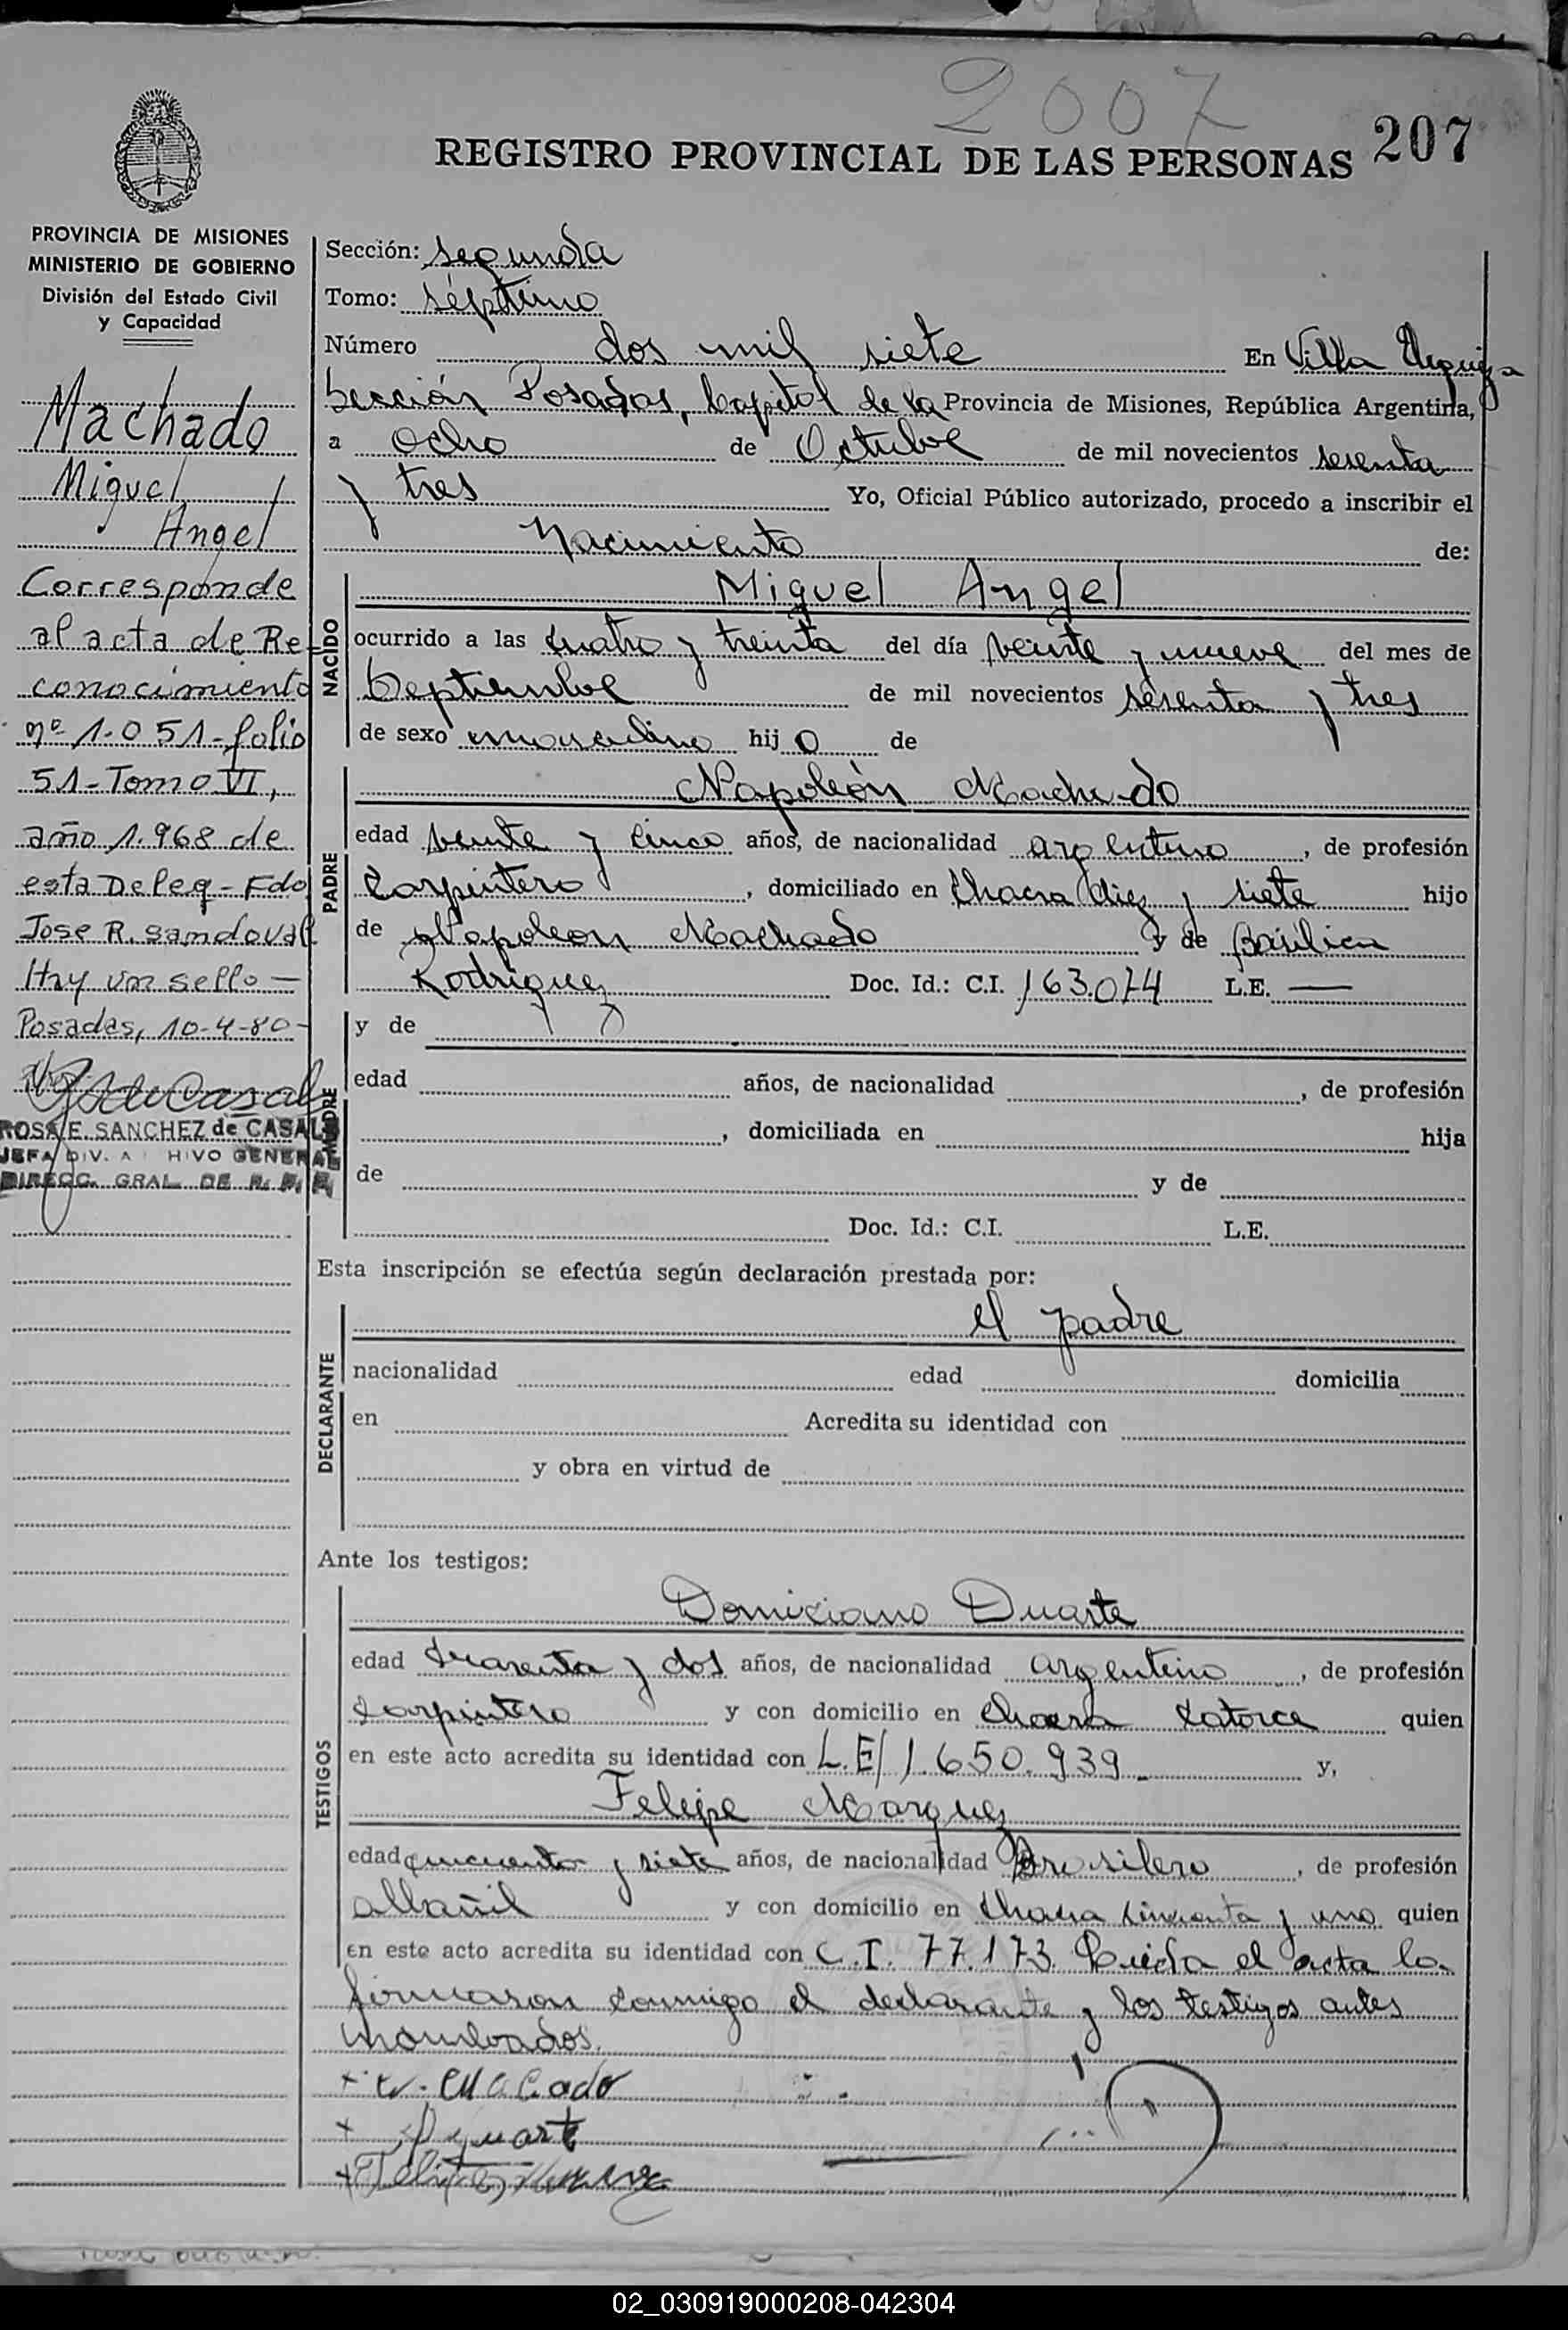 2007
207
REGISTRO PROVINCIAL DE LAS PERSONAS
PROVINCIA DE MISIONES
MINISTERIO DE GOBIERNO
División del Estado Civil
y Capacidad
Machado
Miguel
Angel
Corresponde
al acta de Re-
conocimiento
nº 1.051-folio
51-Tomo VI,
año 1.968 de
esta Deleg - Fdo
Jose R. Sandoval
Hay un sello —
Posadas, 10-4-80-
ROSA E. SANCHEZ de CASALS
JEFA DIV. A HIVO GENERAL
DIRECC. GRAL DE R. P. P.
Sección: segunda
Tomo: séptimo
Número dos mil siete En Villa Urquiza
Sección Posadas, Capital de la Provincia de Misiones, República Argentina,
a ocho de Octubre de mil novecientos sesenta
y tres Yo, Oficial Público autorizado, procedo a inscribir el
Nacimiento de:
NACIDO
Miguel Angel
ocurrido a las cuatro y treinta del día veinte y nueve del mes de
Septiembre de mil novecientos sesenta y tres
de sexo masculino hijo de
PADRE
Napoleón Machado
edad veinte y cinco años, de nacionalidad argentino, de profesión
Carpintero, domiciliado en Chacra diez y siete hijo
de Napoleon Machado y de Basilica
Rodriguez Doc. Id.: C.I. 163.074 L.E. —
MADRE
y de
edad años, de nacionalidad , de profesión
, domiciliada en hija
de y de
Doc. Id.: C.I. L.E.
Esta inscripción se efectúa según declaración prestada por:
DECLARANTE
el padre
nacionalidad edad domicilia
en Acredita su identidad con
y obra en virtud de
Ante los testigos:
TESTIGOS
Domiciano Duarte
edad cuarenta y dos años, de nacionalidad argentino, de profesión
Carpintero y con domicilio en Chacra catorce quien
en este acto acredita su identidad con L.E/ 1.650.939 y,
Felipe Marquez
edad cincuenta y siete años, de nacionalidad Brasilero, de profesión
albañil y con domicilio en Chacra cincuenta y uno quien
en este acto acredita su identidad con C.I. 77.173. Leída el acta la
firmaron conmigo el declarante y los testigos antes
nombrados.
02_030919000208-042304